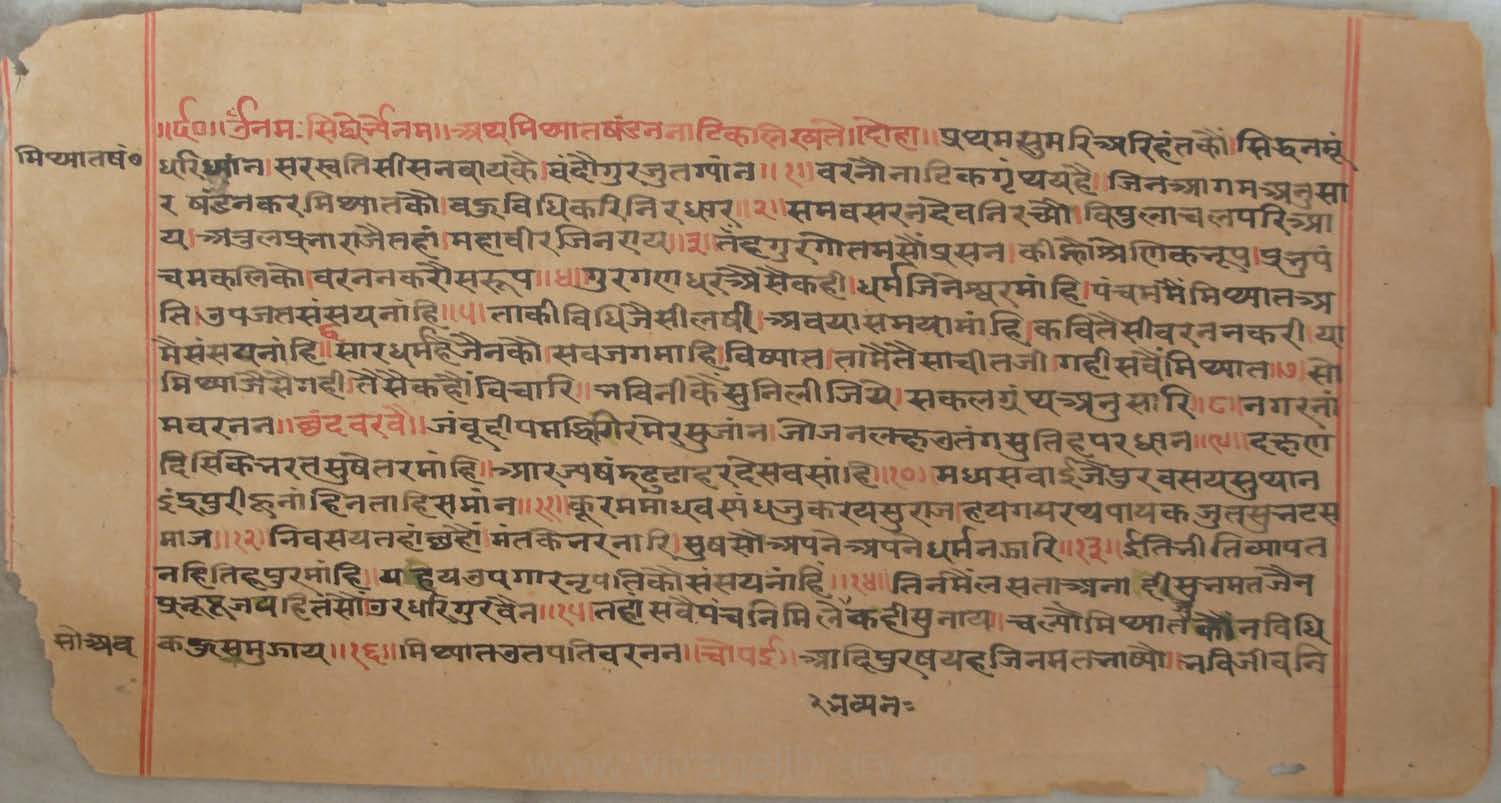 ॥र्द०॥ ॐनमः सिद्धेभ्यैनम॥ अथ मिथ्यातषंडन नाटिक लिख्यते॥ दोहा॥ प्रथम सुमरि अरिहंतकौं। सिद्धनमूं
मिथ्यातषं०
धरि ध्यान। सरस्वति सीस नवायकै। वंदौ गुर जुत ग्यांन॥१॥ वरनौ नाटिक गृंथ यहै। जिन आगम अनुसा
र षंडन कर मिथ्यातकौ। वहु विधि करि निरधार॥२॥ समवसरन दैव निरच्यौ। विपुलाचल परि आ
य। अतुल प्रभा राजै तहां। महावीर जिनराय॥३॥ तंह गुर गौतम सौं प्रसन। कीह्नौ श्रेणिक भूप। प्रभु पं
चमकलिकौ। वरनन करौ सरूप॥४॥ गुर गणधर अैसै कही। धर्म जिनेश्वर मांहि। पंचम मैं मिथ्यात अ
ति। उपजत संसय नांहि॥५॥ ताकी विधि जैसी लषी। अवया समया मांहि। कवि तैसी वरनन करी। या
मै संसय नांहि॥६॥ सार धर्म है जैनकौ। सव जग माहि विष्यात। तामै तैं साची तजी। गही सवैं मिथ्यात॥७॥ सो
मिथ्या जैसै गही। तैसै कहौं विचारि। भवि नीकै सुनि लीजिये। सकल ग्रंथ अनुसारि॥८॥ नगर नां
म वरनन॥ छंद वरवै॥ जंवूदीप मद्धि गिर मेर सुजांन। जोजन लक्ष उतंग सुतिह परधान॥९॥ दक्षण
दिसि कै भरत सुषेतर मांहि॥ आरज्यषंड ढुढाहर देस वसांहि॥१०॥ मध्य सवाई जैपुर वसय सुथान
इंद्रपुरी हू नांहिन ताहि समान॥११॥ कूरम माधव स्यंध जु करय सुराज। हय गय रथ पायक जुत सुभट स
माज॥१२॥ निवसय तहां छहौं मंतके नर नारि। सुष सौं अपनै अपनै धर्म मझारि॥१३॥ ईति भीति व्यापत
नहि तिह पुर मांहि॥ यह है य उपगार नृपति कौ संसय नांहि॥१४॥ तिन मैं लसत सुभमत जैन
प्रभू जजय हित सौं उर धरि गुर वैन॥१५॥ तहां सवै पंचनि मिलै कही सुनाय। चल्यौ मिथ्यात कौंन विधि
सौ अव
कहु समुझाय॥१६॥ मिथ्यात उतपति वरनन॥ चौपई॥ आदि पुरष यह जिनमत भाष्यौ। भवि जीवनि